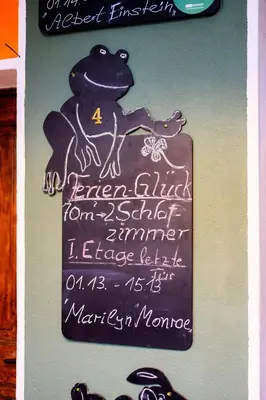 01.14.
"Albert Einstein"
4
Ferien-Glück
70m² 2 Schlaf-
zimmer
I. Etage letzte
Tür
01.13. - 15.13
"Marilyn Monroe"